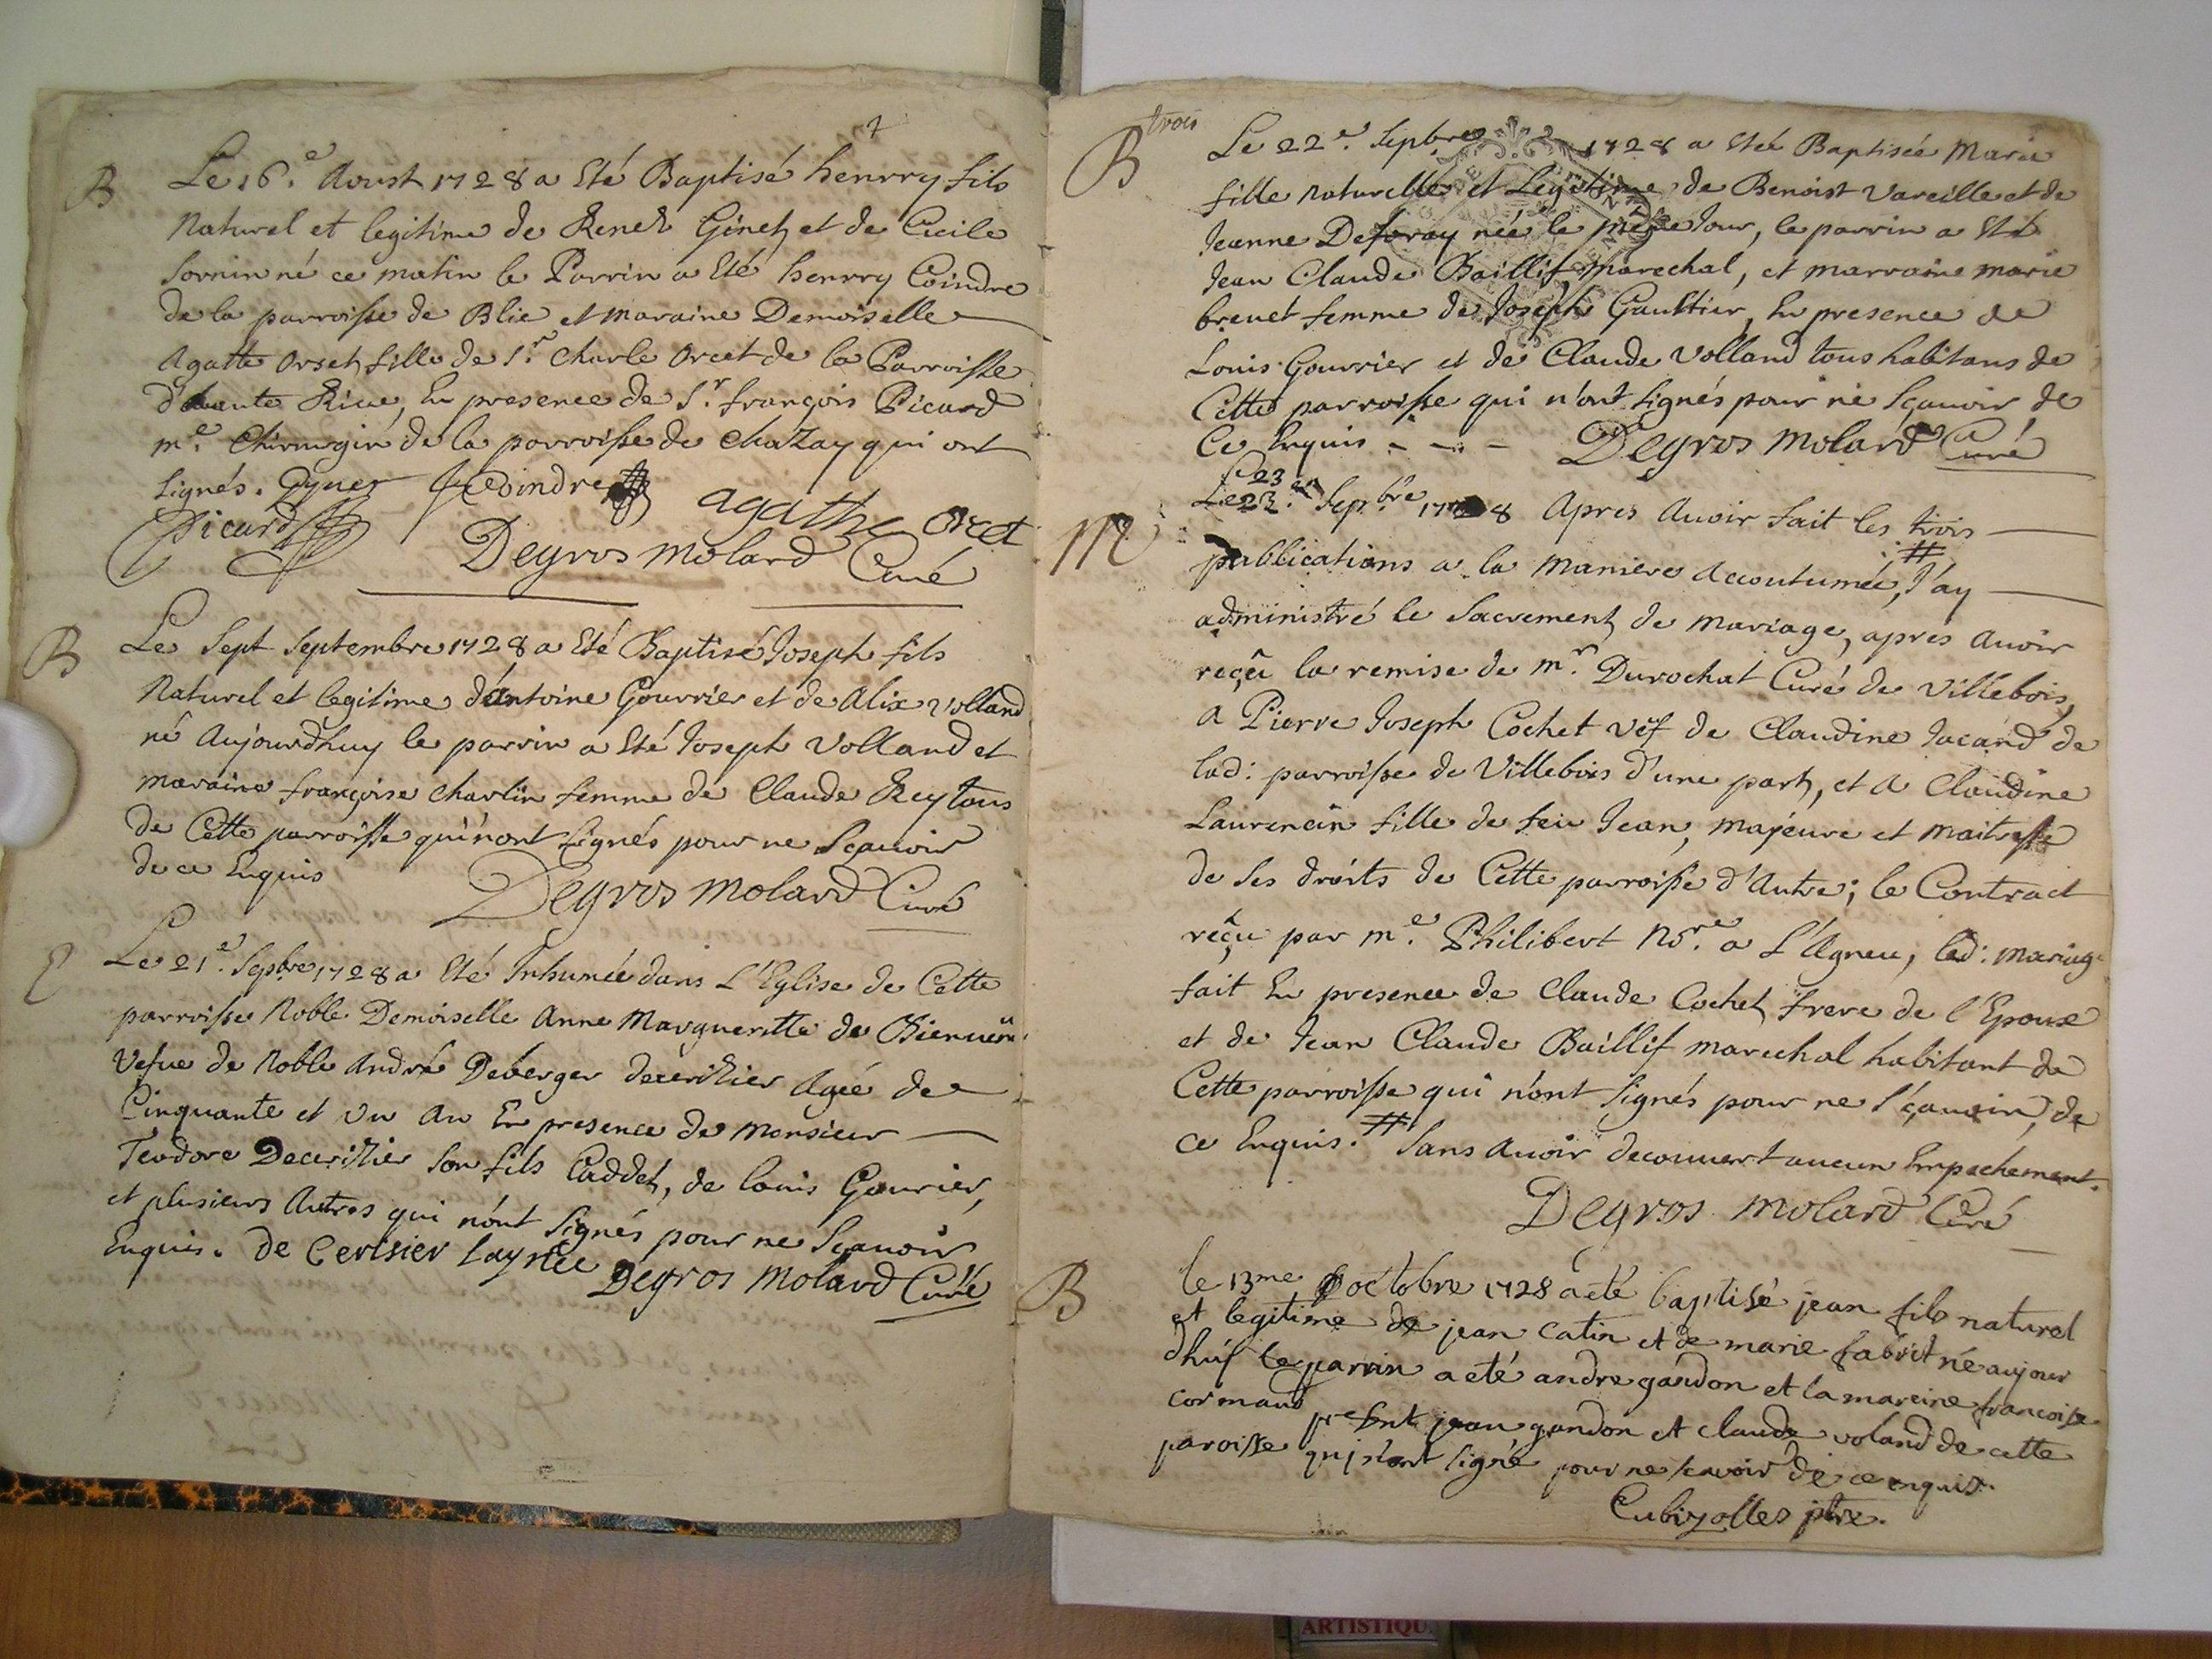 2
B
Le 16.e Aoust 1728 a Eté Baptisé henrry fils
Naturel et legitime de Renet Ginet et de Cicile
Sornin né ce matin le Parrin a Eté henrry Coindre
de la parroisse de Blie et maraine Demoiselle
Agatte Orset fille de Sr. Charle Orcet de la Parroisse
d'haute Rive, En presence de Sr. françois Picard
me. Chirurgin de la parroisse de Chazay qui ont
signés. Coindre
Picard agathe orcet
Degros molard Curé
B
Le Sept Septembre 1728 a Eté Baptisé Joseph fils
Naturel et legitime d'antoine Gourrier et de Alix Volland
né Aujourdhuy le parrin a Eté Joseph Volland et
maraine françoise Charlin femme de Claude Rey tous
de Cette parroisse qui n'ont signés pour ne Sçauoir
de ce Enquis Degros molard Curé
E
Le 21e. Sepbre 1728 a Eté Inhumée dans L'Eglise de Cette
parroisse Noble Demoiselle Anne Margueritte de
Vefue de Noble André Deberger decerisier Agée de
Cinquante et un an En presence de Monsieur
Teodore Decerisier son fils Caddet, de louis Gourier,
et plusieurs Autres qui n'ont Signés pour ne Sçauoir
Enquis. de Cerisier laynee Degros Molard Curé
trois
B
Le 22e. Sepbre 1728 a Eté Baptisée Marie
fille naturelle et Legitime de Benoist Vareille et de
Jeanne née le même Jour, le parrin a Eté
Jean Claude Baillif marechal, et marraine marie
breuet femme de Joseph Gaultier, En presence de
Louis Gourrier et de Claude Volland tous habitans de
Cette parroisse qui n'ont signés pour ne Sçauoir de
Ce Enquis - - - Degros molard Curé
23
M
Le 23.e Sepbre. 1728 Apres Auoir fait les trois
publications a la maniere Accoutumée, # J'ay
administré le Sacrement de mariage, apres Auoir
reçeu la remise de mr. Durochat Curé de Villebois,
a Pierre Joseph Cochet vef de Claudine Jacand de
lad: parroisse de Villebois d'une part, et a Claudine
Laurencin fille de feu Jean, majeure et maitresse
de ses droits de Cette parroisse d'Autre; le Contract
reçu par me. Philibert Nore. a L'Agneu, led: mariage
fait En presence de Claude Cochet frere de l'Epoux
et de Jean Claude Baillif marechal habitant de
Cette parroisse qui n'ont signés pour ne sçauoir, de
ce Enquis. # Sans Auoir decouuert aucun Empechement.
Degros molard Curé
B
le 13me octobre 1728 a eté baptisé jean fils naturel
et legitime de jean catin et de marie fabret né aujour
dhuf le parrin a eté andre gandon et la mareine francoise
cormand present jean gandon et claude voland de cette
paroisse qui n'ont signé pour ne scavoir de ce enquis.
Cubizolles ptre.
ARTISTIQU